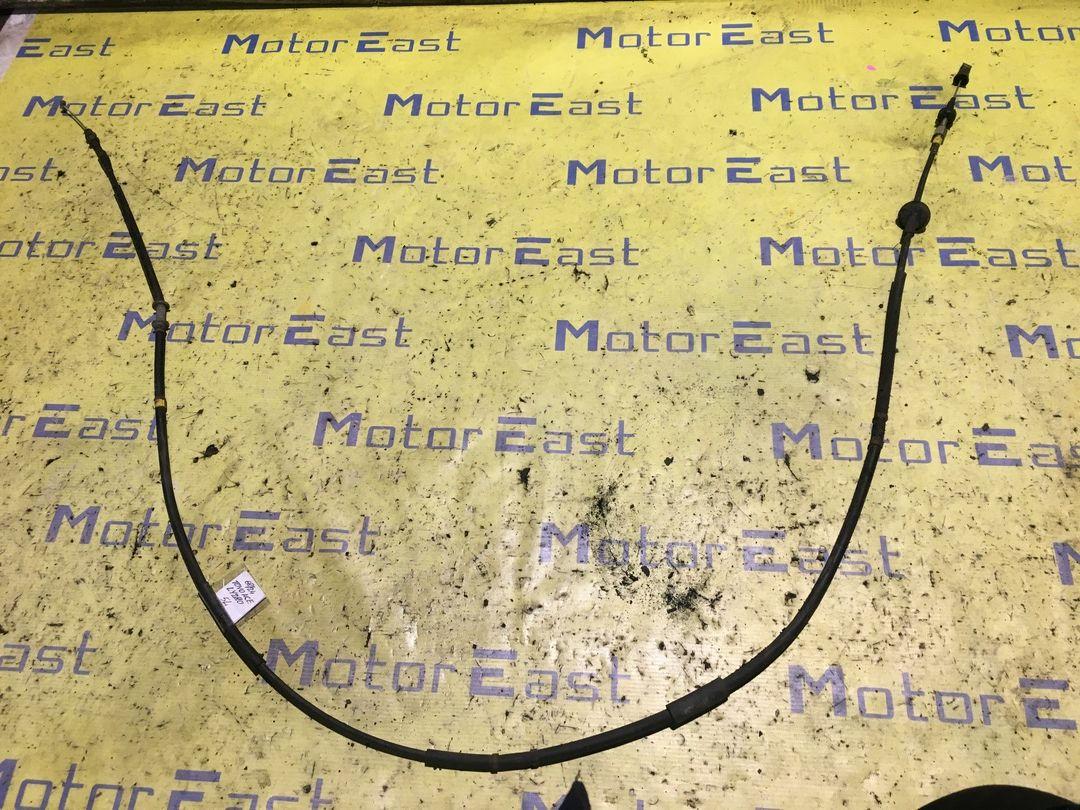 East MotorEast MotorEast Motor
MotorEast MotorEast MotorEast
ast MotorEast MotorEast Mot
otorEast MotorEast MotorEast
MotorEast MotorEast M
rEast MotorEast MotorEas
MotorEast MotorEast M
TOYOACE
LY280
5L
ast MotorEast MotorE
MotorE